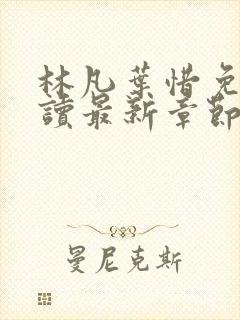 林凡葉惜免
讀最新章節
曼尼克斯